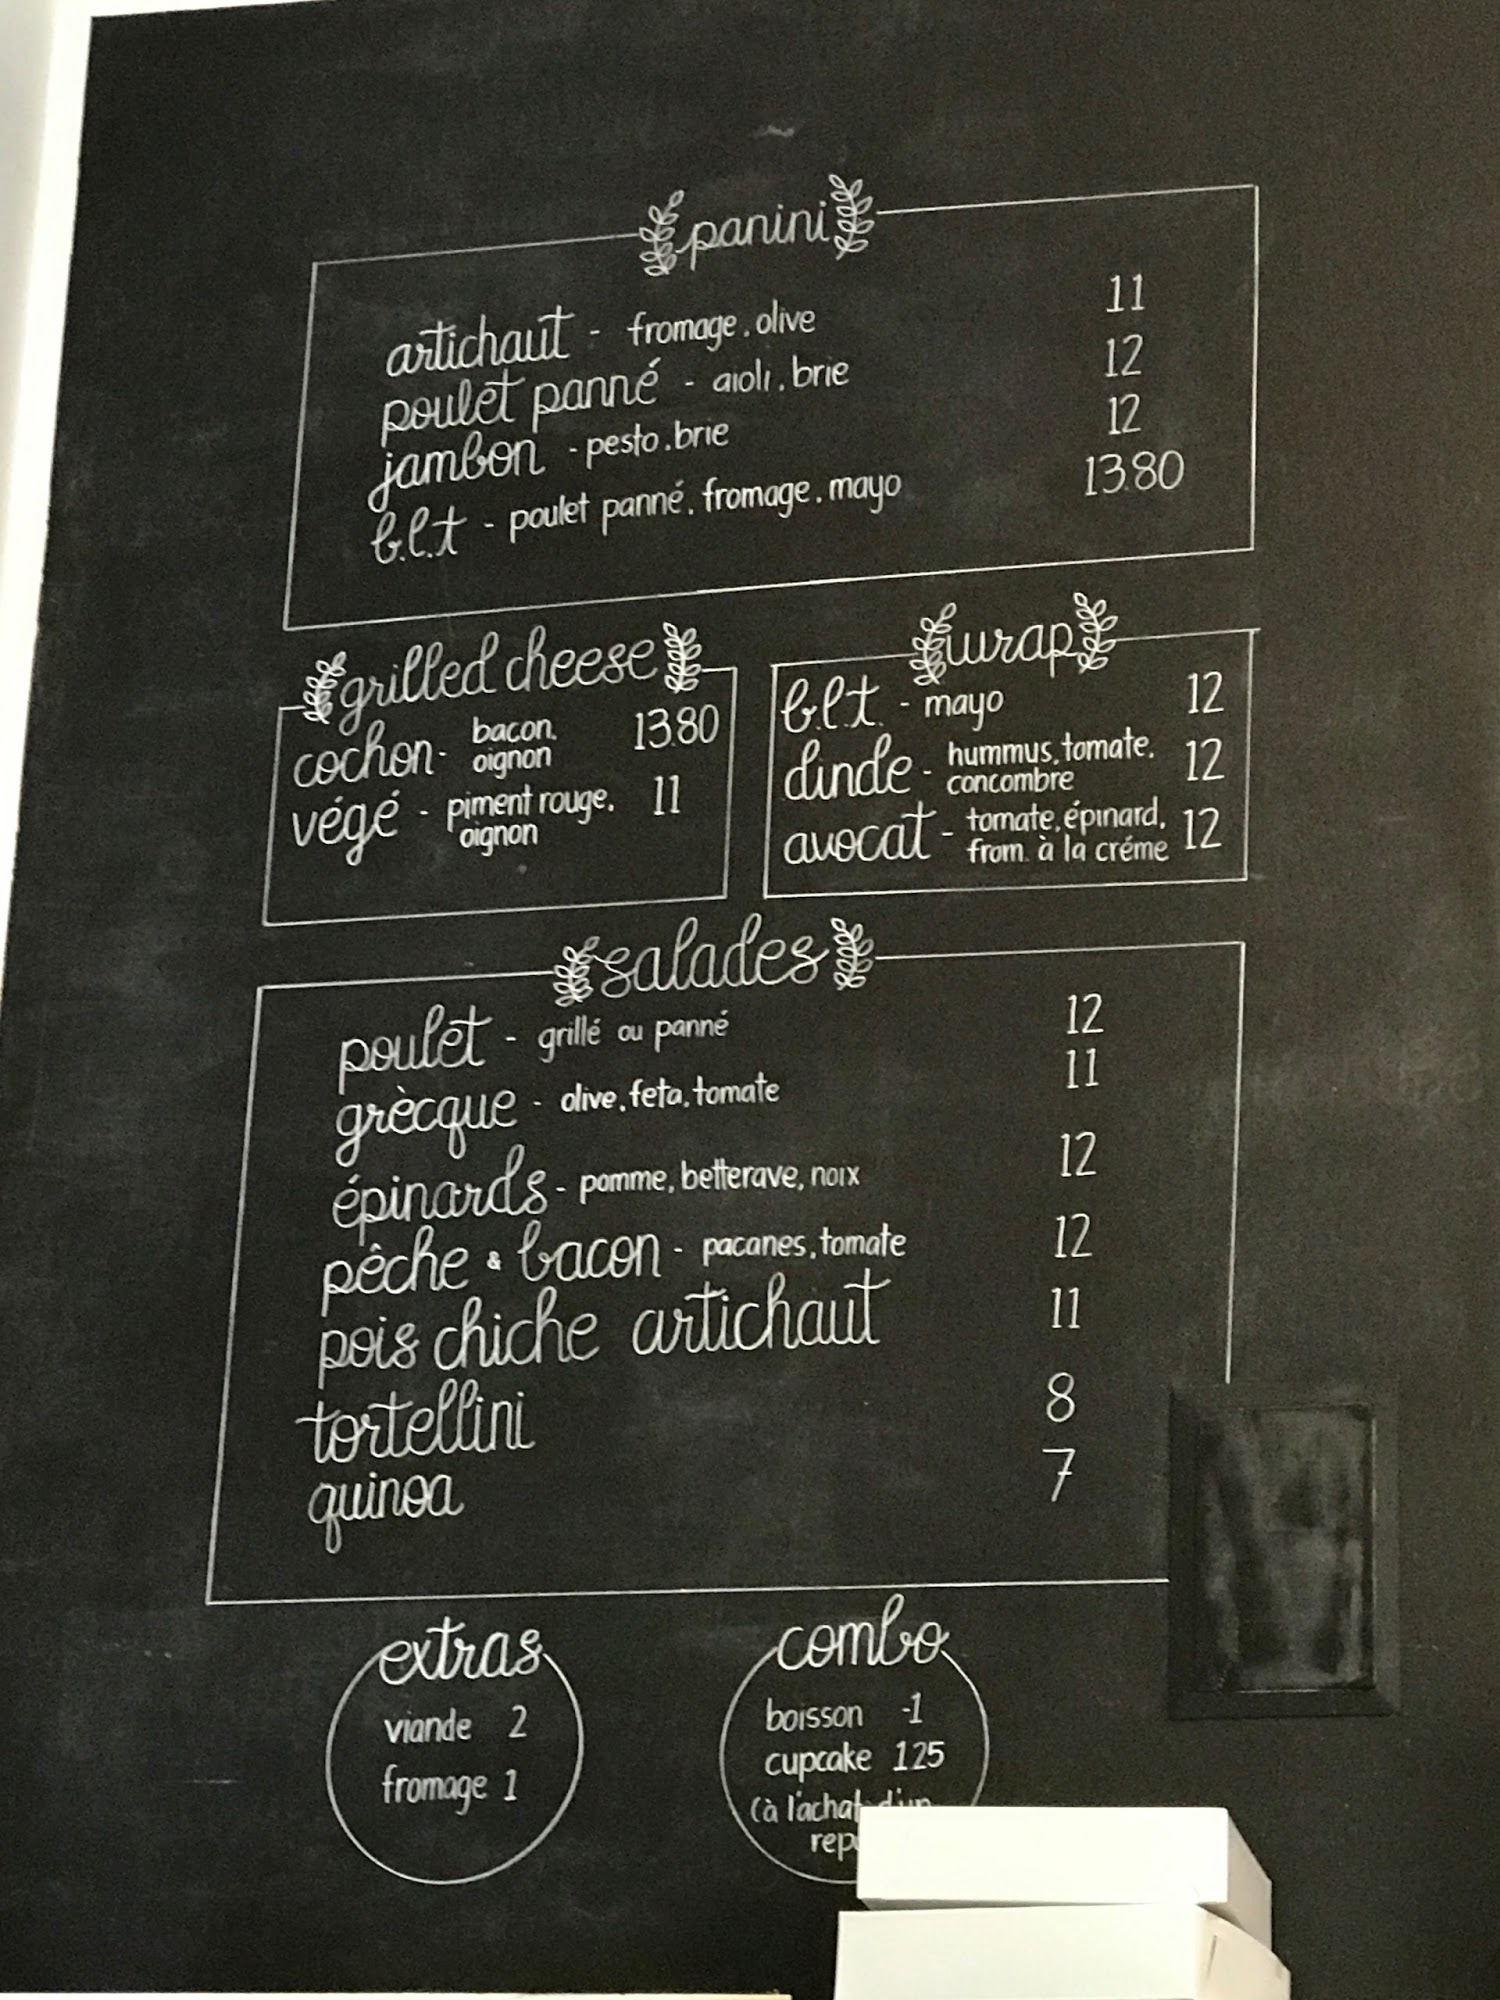 panini
artichaut - fromage, olive 11
poulet panné - aioli, brie 12
jambon - pesto, brie 12
b.l.t - poulet panné, fromage, mayo 13.80
grilled cheese
cochon - bacon, 13.80
oignon
végé - piment rouge, 11
oignon
wrap
b.l.t. - mayo 12
dinde - hummus, tomate, 12
concombre
avocat - tomate, épinard, 12
from. à la créme
salades
poulet - grillé ou panné 12
grècque - olive, feta, tomate 11
épinards - pomme, betterave, noix 12
pêche & bacon - pacanes, tomate 12
pois chiche artichaut 11
tortellini 8
quinoa 7
extras
viande 2
fromage 1
combo
boisson -1
cupcake 1.25
(à l'achat d'un